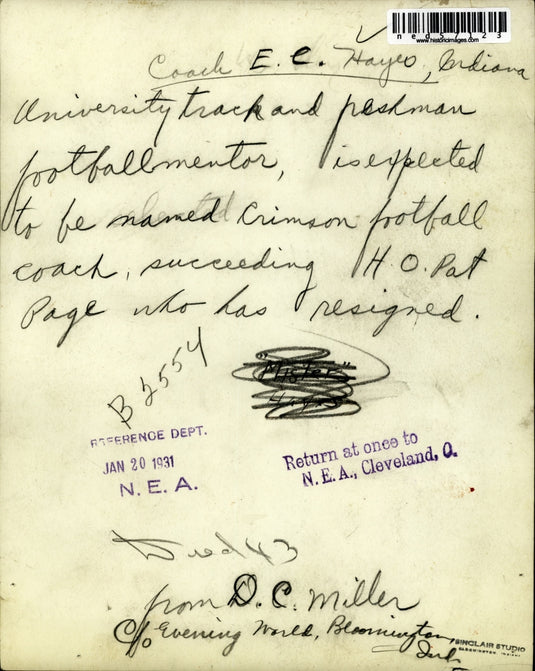 ned57123
www.historicimages.com
Coach E. C. Hayes, Indiana
University track and freshman
football mentor, is expected
to be named Crimson football
coach, succeeding H. O. Pat
Page who has resigned.
"Mister"
Hayes
B 2554
REFERENCE DEPT.
JAN 20 1931
N. E. A.
Return at once to
N. E. A., Cleveland, O.
Died 43
from D. C. Miller
c/o Evening World, Bloomington,
Ind.
SINCLAIR STUDIO
BLOOMINGTON, INDIANA